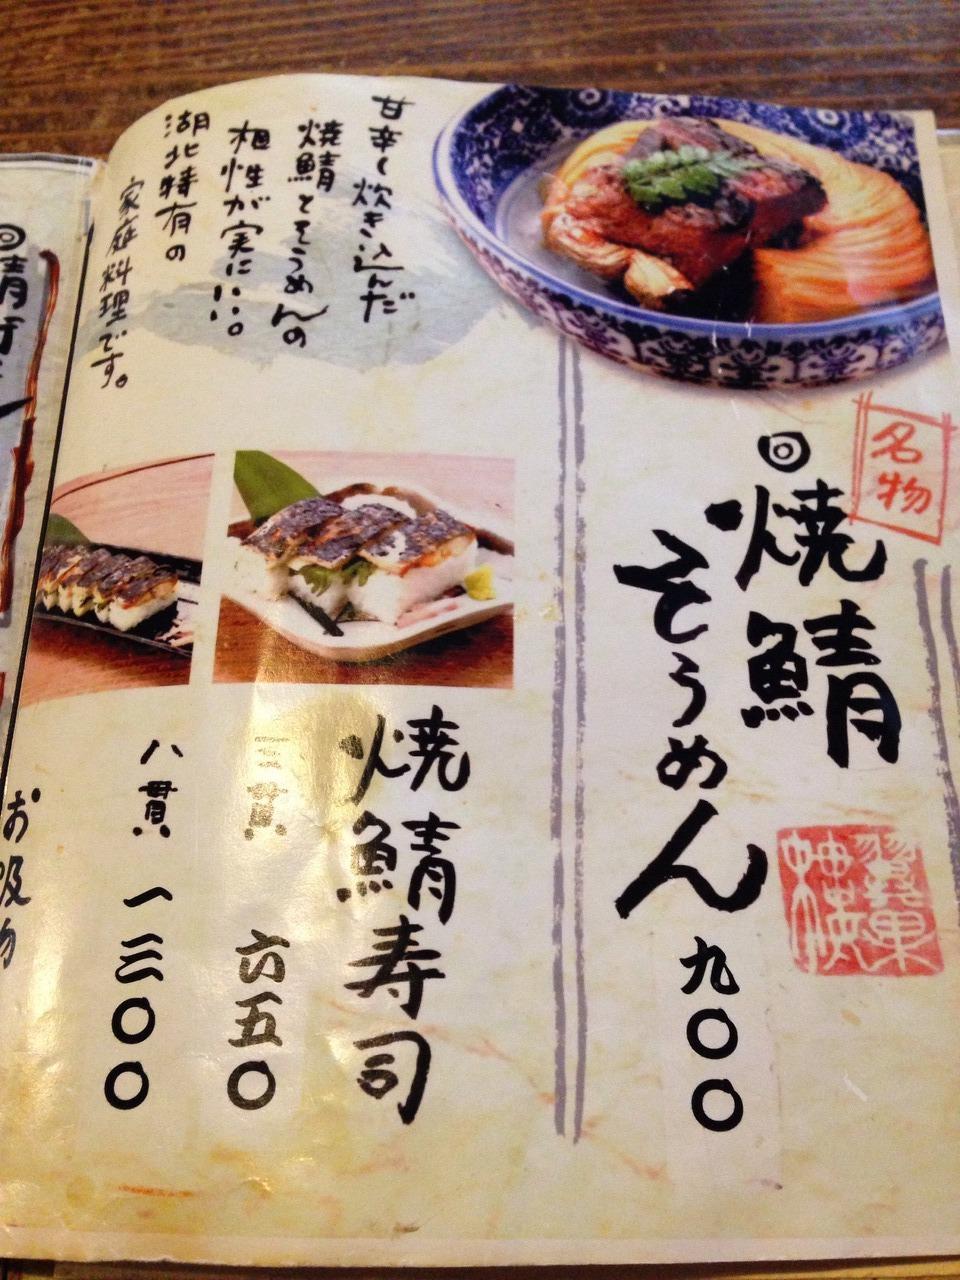 名物
焼鯖
そうめん
九〇〇
甘辛く炊き込んだ
焼鯖とそうめんの
相性が実にいい。
湖北特有の
家庭料理です。
焼鯖寿司
三貫 六五〇
八貫 一三〇〇
お吸物